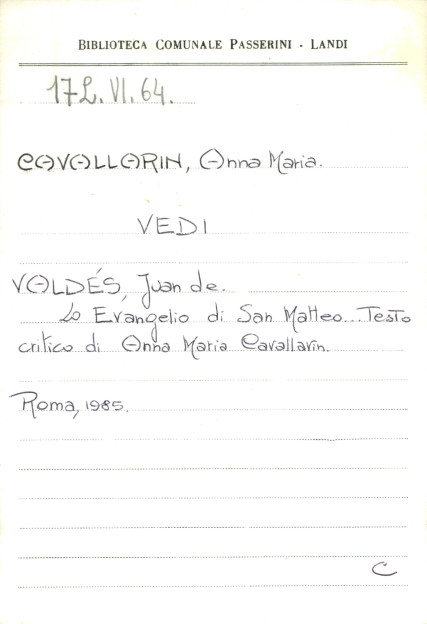 BIBLIOTECA COMUNALE PASSERINI - LANDI
172.VI.64.
CAVALLARIN, Anna Maria.
VEDI
VALDÉS, Juan de.
Lo Evangelio di San Matteo... Testo
critico di Anna Maria Cavallarin.
Roma, 1985.
C